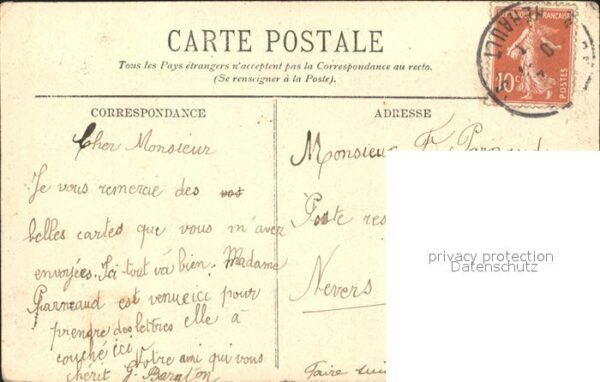 CARTE POSTALE
Tous les Pays étrangers n'acceptent pas la Correspondance au recto.
(Se renseigner à la Poste).
FRANÇAISE
10c
POSTES
HÉRAULT
CORRESPONDANCE
Cher Monsieur
Je vous remercie des vos
belles cartes que vous m'avez
envoyées. Ici tout va bien. Madame
est venue ici pour
prendre des lettres elle à
couché ici
Votre ami qui vous
chérit G.
ADRESSE
Monsieur F.
Poste res
Nevers
Faire sui
privacy protection
Datenschutz